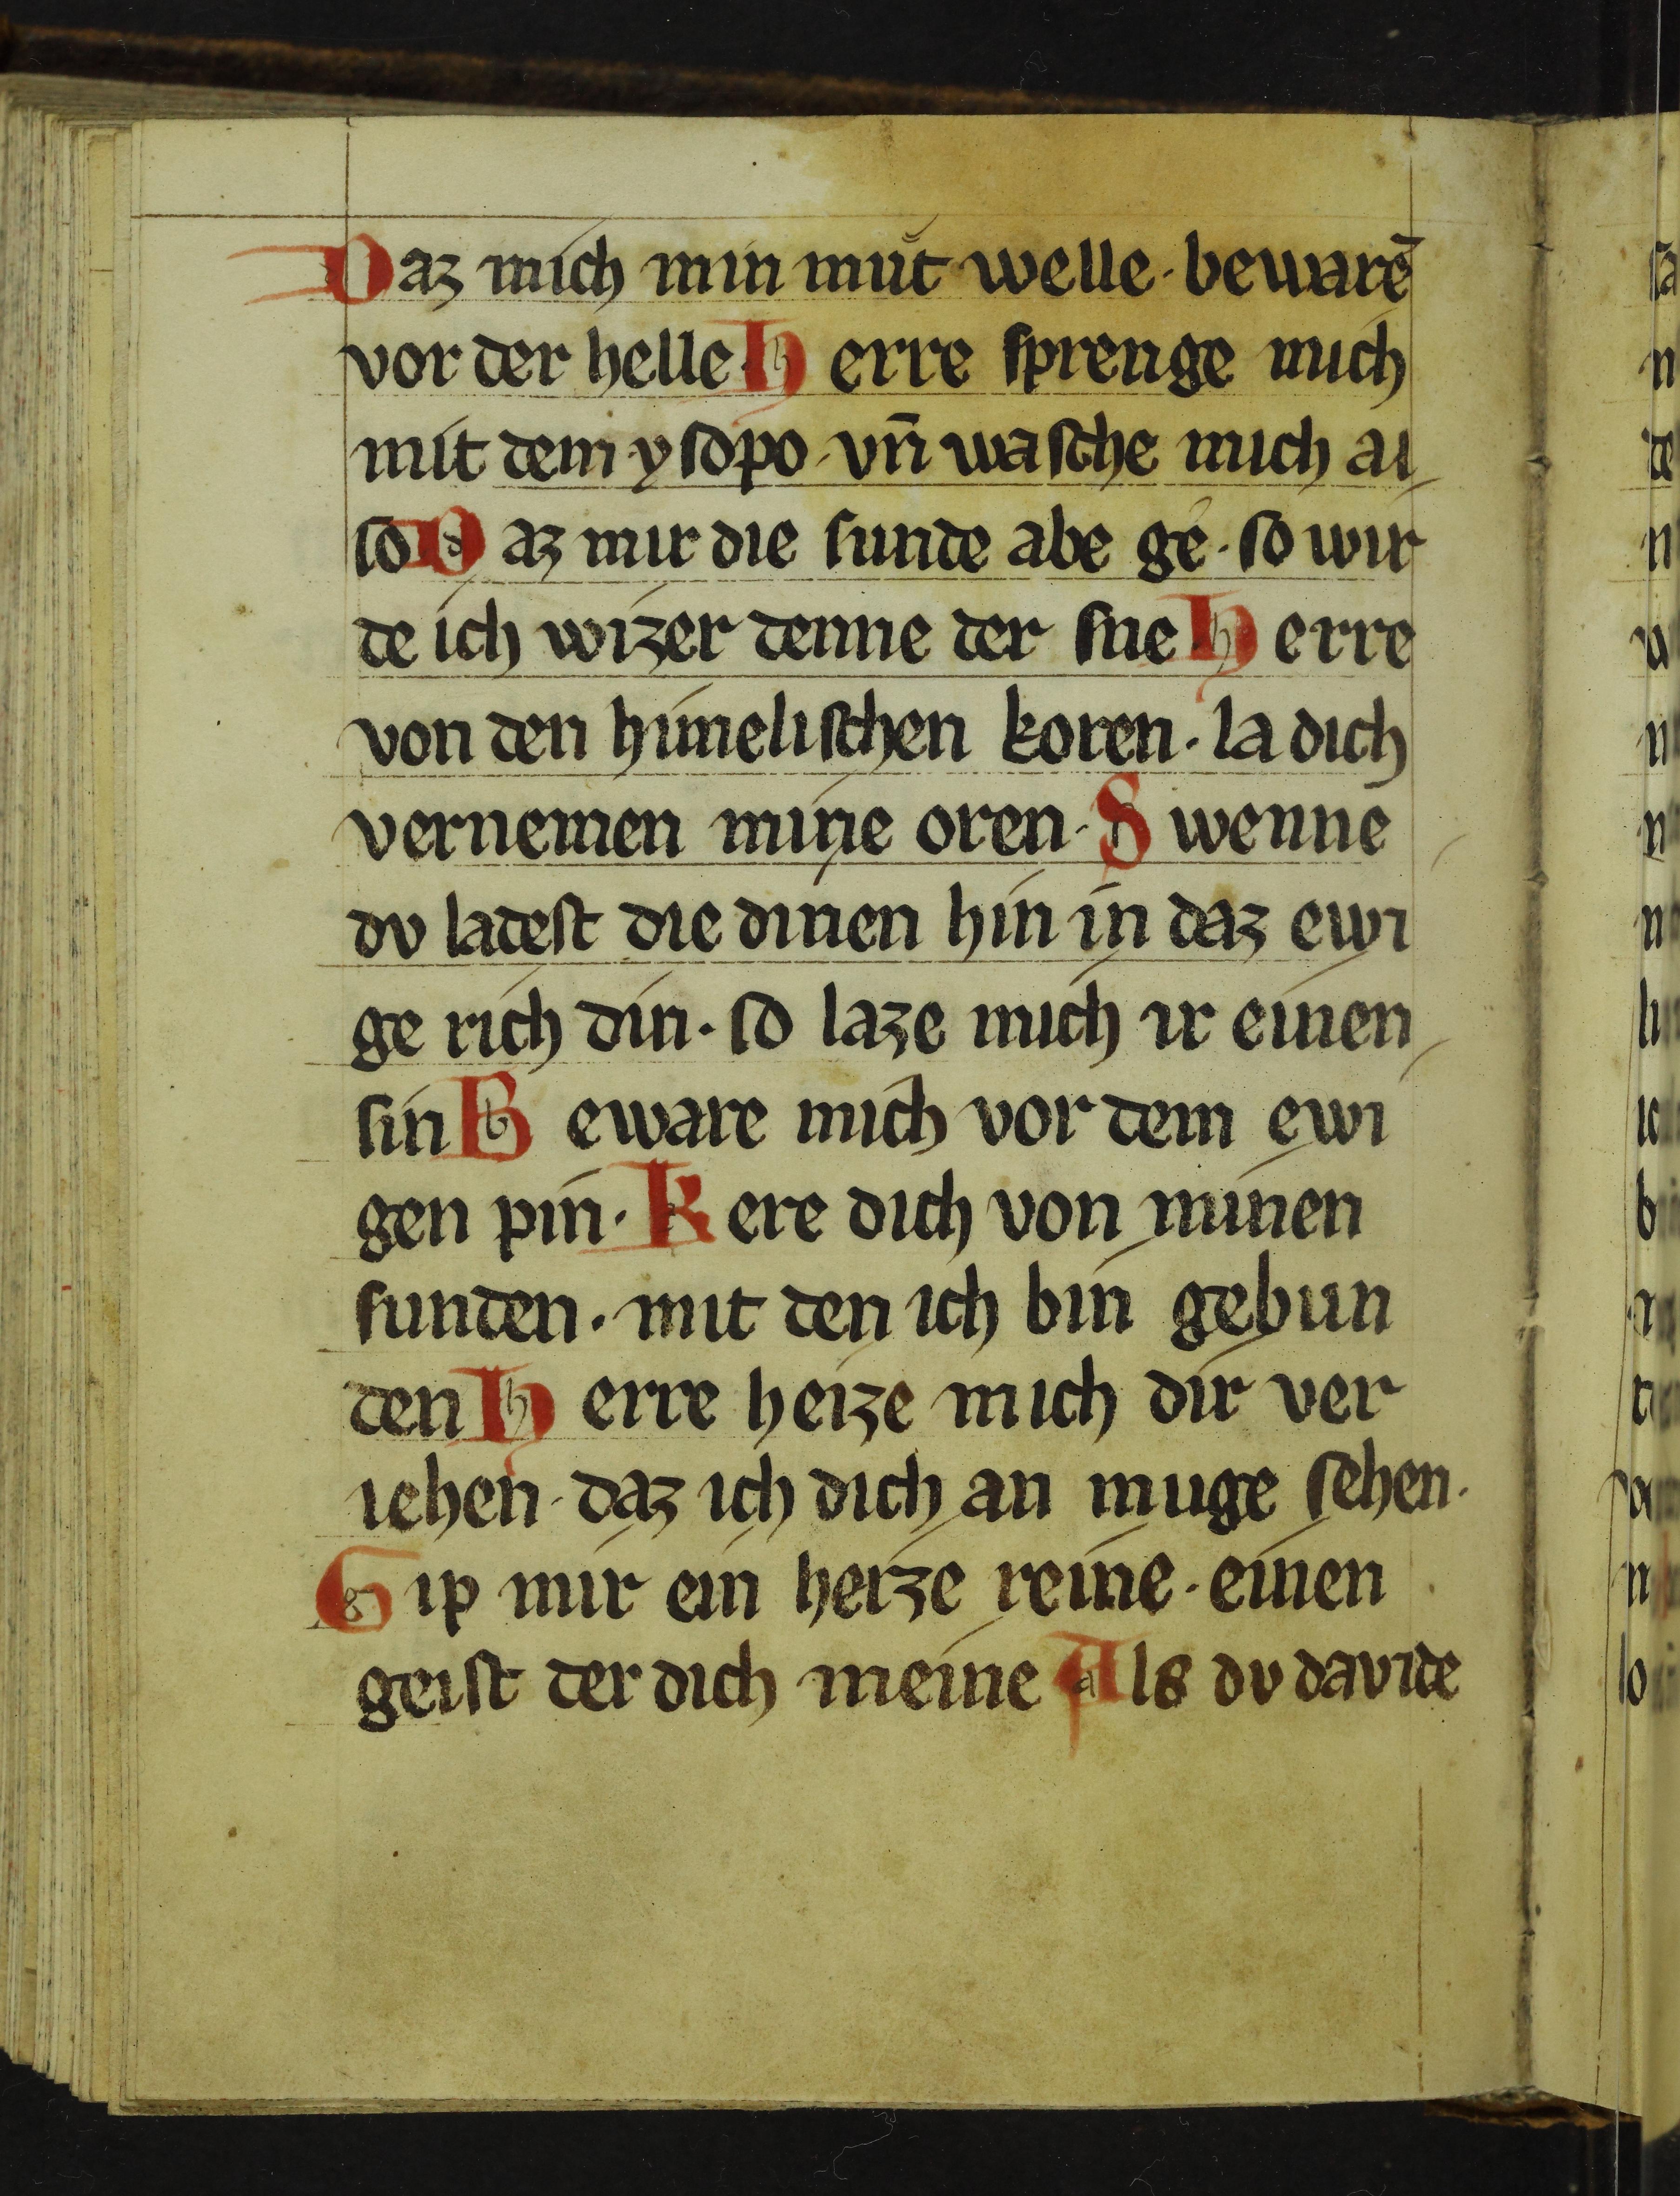 Daz mich min mu̇t welle · bewarē
vor der helle · Herre ſprenge mich
mit dem · yſopo · vn̄ waſche mich al
ſo Daz mir die ſunde abe gé · ſo wir
de ich wizer denne der ſne · Herre
von den himeliſchen koren · la dich
vernemen mine oren · Swenne
dv ladeſt die dinen hin in daz ewi
ge rich din · ſo laze mich ir einen
ſin Beware mich vor dem ewi
gen pin · Kere dich von minen
ſunden · mit den ich bin gebun
den Herre heize mich dir ver
iehen · daz ich dich an muge ſehen ·
Gip mir ein herze reine · einen
geiſt der dich meine Als dv davide